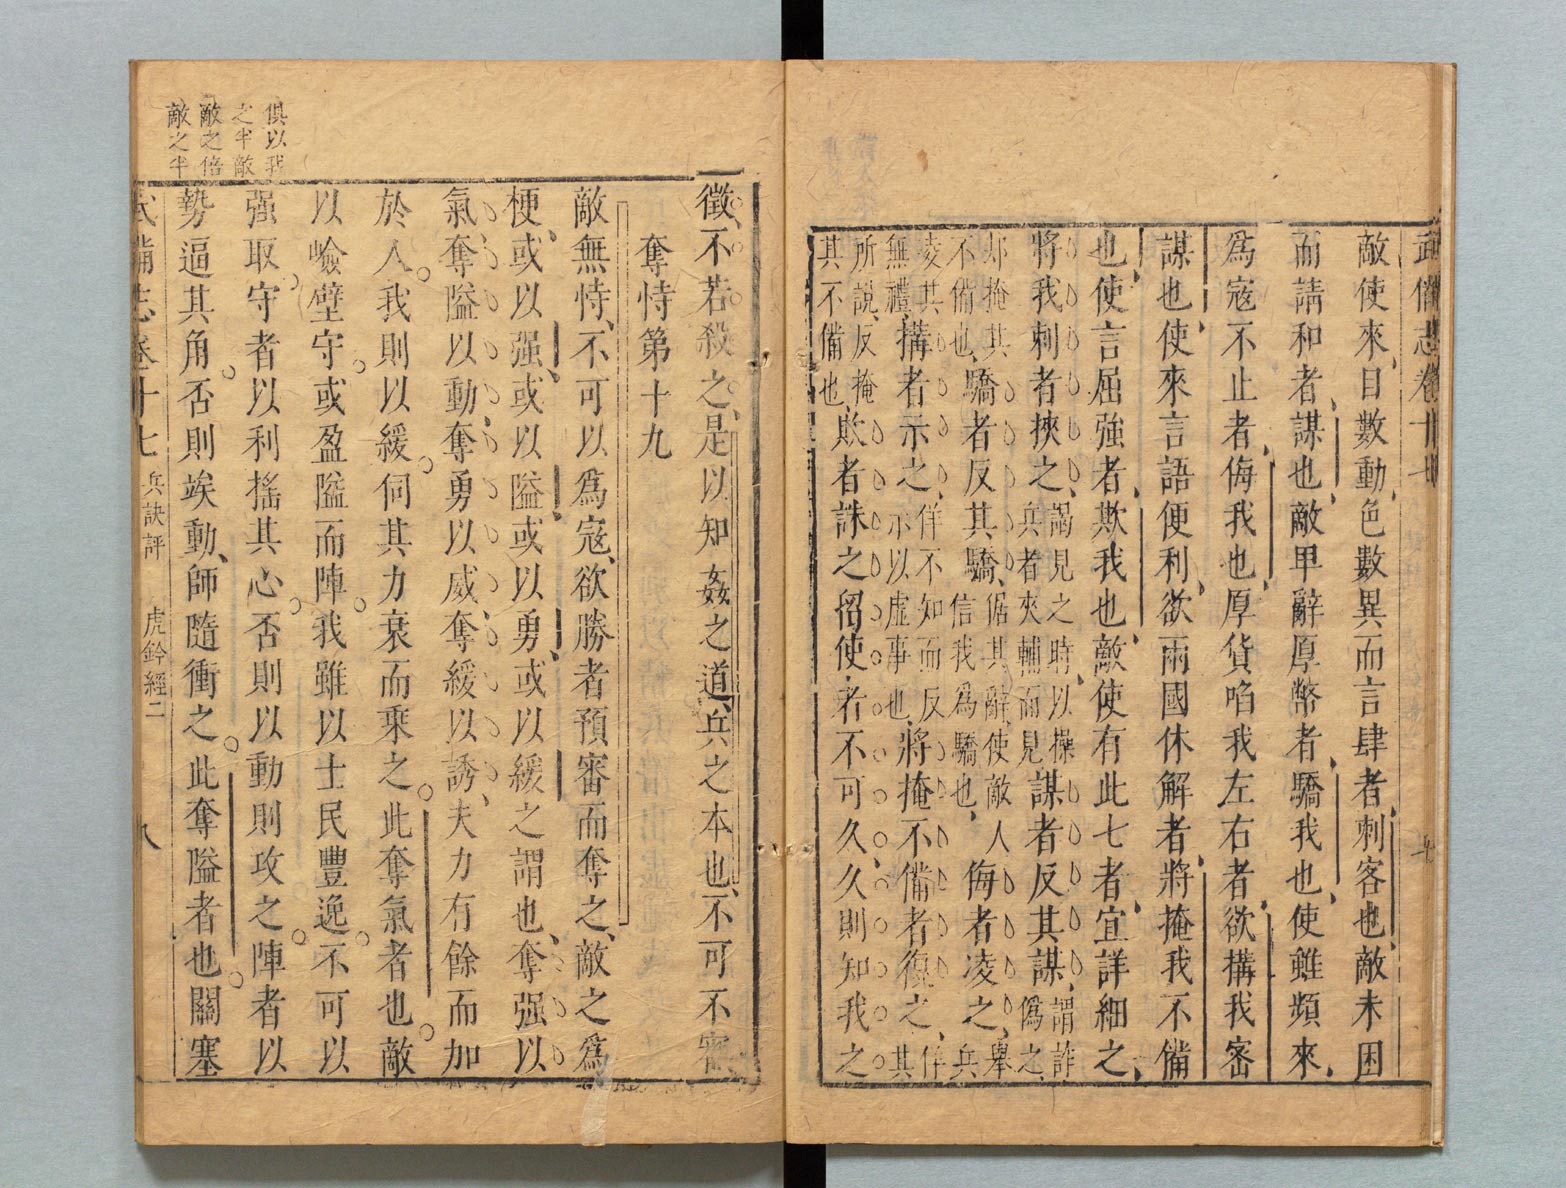 武備志卷十七 七
敵使來目數動色數異而言肆者刺客也敵未困
而請和者謀也敵卑辭厚幣者驕我也使雖頻來
為寇不止者侮我也厚貨啗我左右者欲搆我密
謀也使來言語便利欲兩國休解者將掩我不備
也使言屈強者欺我也敵使有此七者宜詳細之
將我刺者挾之謁見之時以操兵者夾輔而見謀者反其謀謂詐偽之
却掩其不備也驕者反其驕倨其辭使敵人信我為驕也侮者凌之舉兵
凌其無禮搆者示之佯不知而反示以虛事也將掩不備者復之佯其
所說反掩其不備也敗者誅之留使者不可久久則知我之
徵不若殺之是以知姦之道兵之本也不可不審
奪恃第十九
敵無恃不可以為寇欲勝者預審而奪之敵之為
梗或以强或以隘或以勇或以緩之謂也奪强以
氣奪隘以動奪勇以威奪緩以誘夫力有餘而加
於人我則以緩伺其力衰而乘之此奪氣者也敵
以嶮壁守或盈隘而陣我雖以士民豐逸不可以
强取守者以利搖其心否則以動則攻之陣者以
勢逼其角否則竢動師隨衝之此奪隘者也關塞
武備志卷十七 兵訣評 虎鈐經二 八
俱以我
之半敵
敵之倍
敵之半